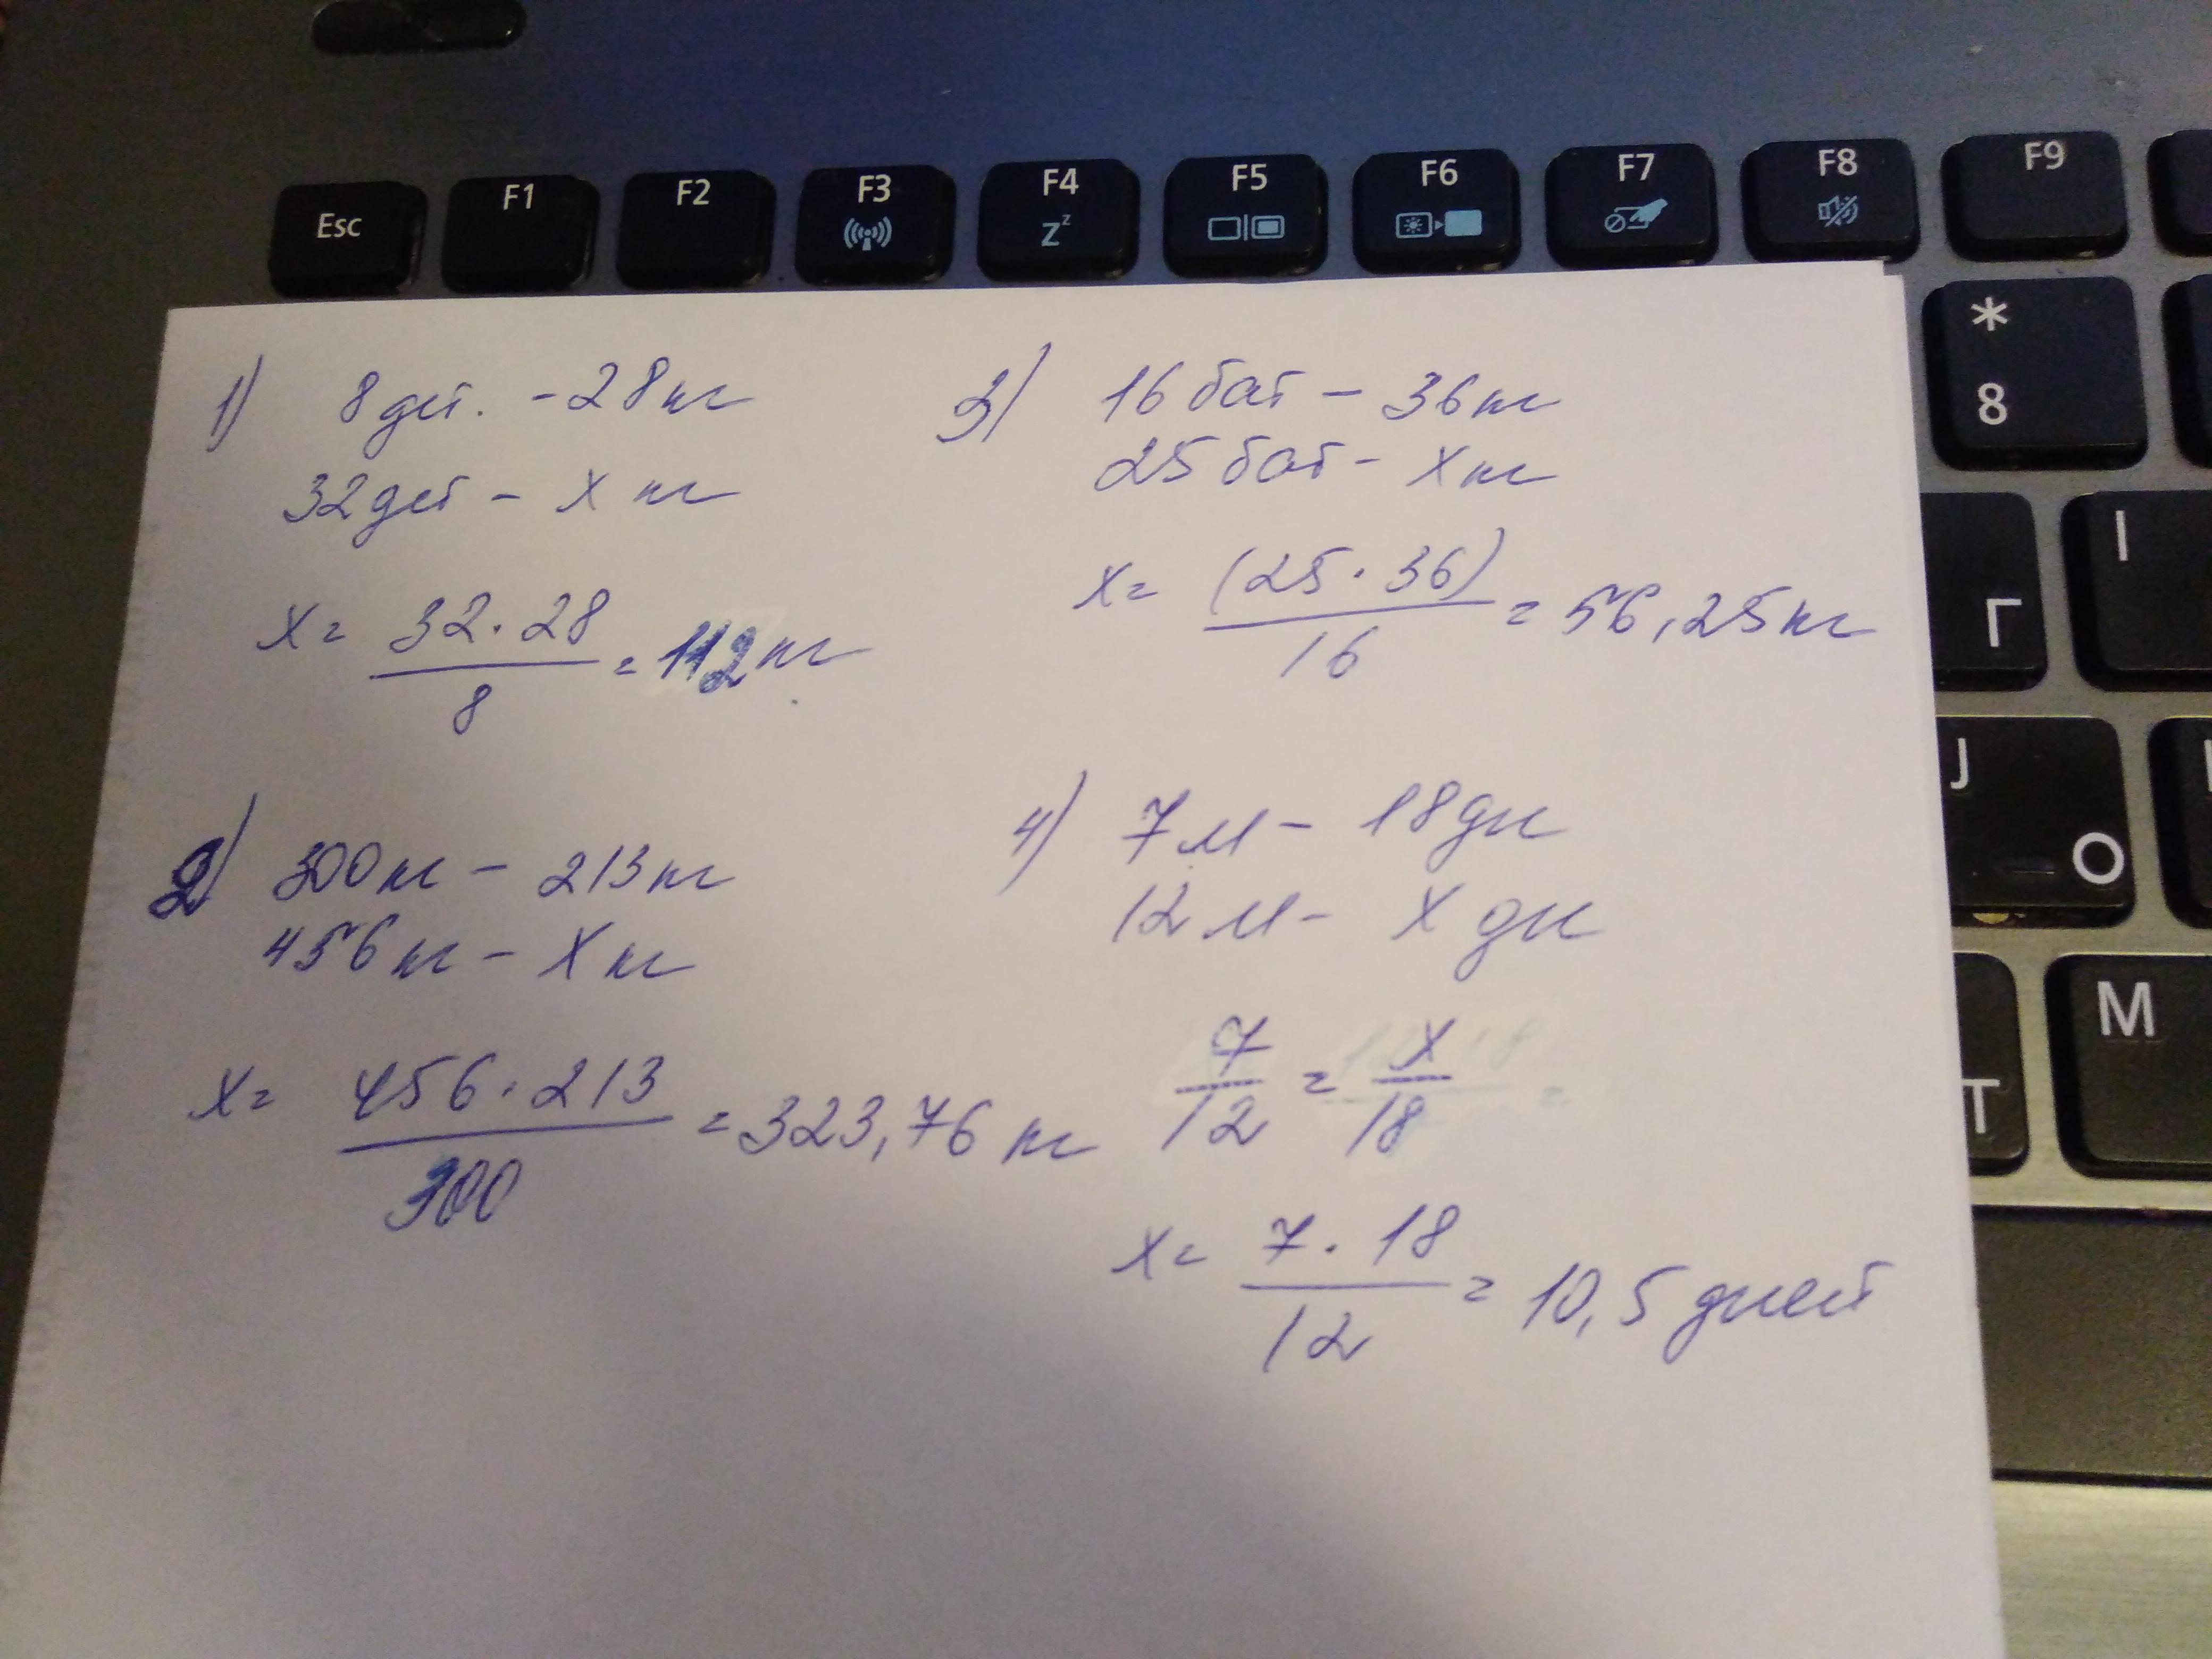 Esc F1 F2 F3 F4 F5 F6 F7 F8 F9
Zz
* 8
I
Г
J
О
М
Т
1) 8 дет. - 28 кг
32 дет - x кг
x = 32 · 28 / 8 = 112 кг
2) 300 кг - 213 кг
456 кг - x кг
x = 456 · 213 / 300 = 323,76 кг
3) 16 бат - 36 кг
25 бат - x кг
x = (25 · 36) / 16 = 56,25 кг
4) 7 м - 18 дн
12 м - x дн
7 / 12 = x / 18
x = 7 · 18 / 12 = 10,5 дней